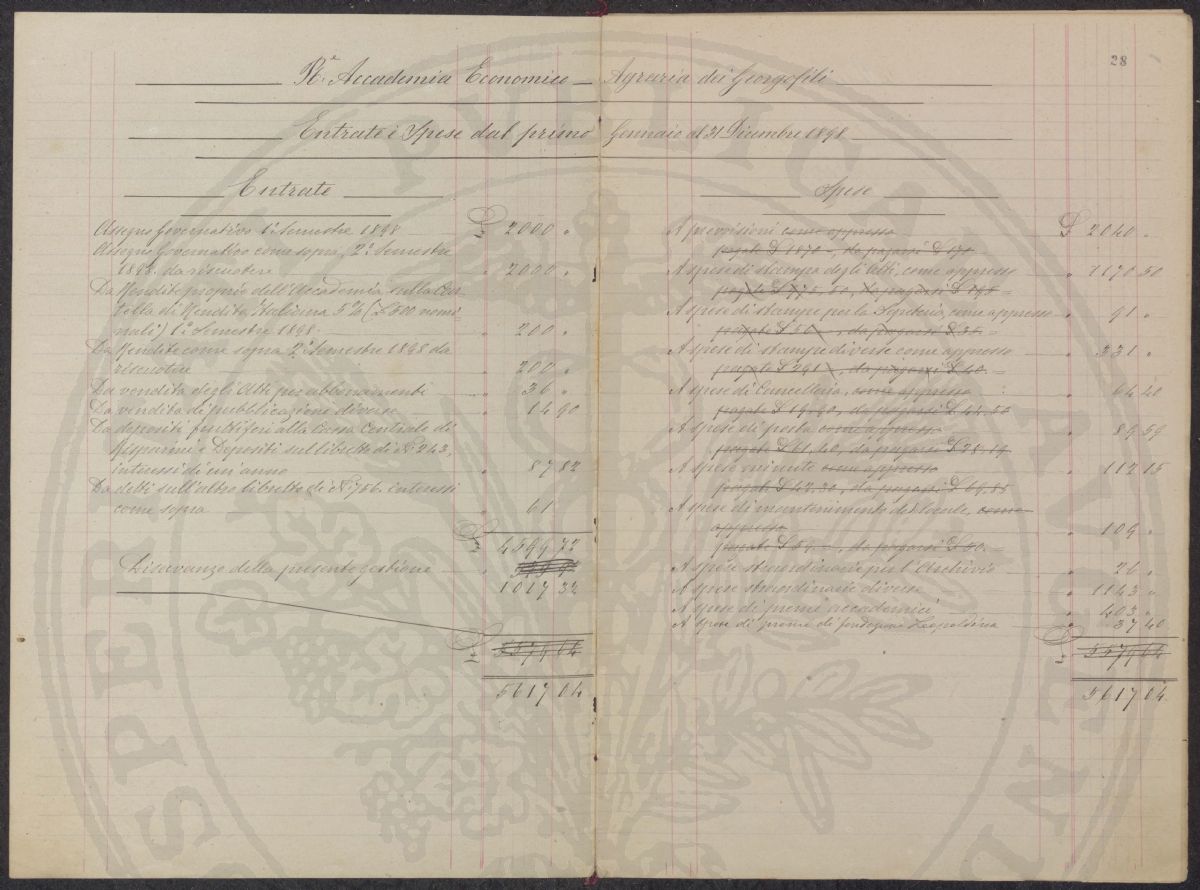 28
R.e Accademia Economico Agraria dei Georgofili
Entrate e Spese dal primo Gennaio al 31 Dicembre 1898
Entrate
Assegno Governativo 1o Semestre 1898 £ 2000 "
Assegno Governativo come sopra, 2o Semestre
1898 da riscuotere " 2000 "
Da Rendite proprie dell'Accademia sulla Car-
tella di Rendita Italiana 5% (£ 500 nomi-
nali) 1o Semestre 1898 " 200 "
Da Rendite come sopra 2o Semestre 1898 da
riscuotere " 200 "
Da vendita degli Atti per abbonamenti " 36 "
Da vendita di pubblicazioni diverse " 14 90
Da depositi fruttiferi alla Cassa Centrale di
Risparmi e Depositi sul libretto di No 243,
interessi di un anno " 87 82
Da detti sull'altro libretto di No 756 interessi
come sopra " 61 "
£ 4599 72
Disavanzo della presente gestione "
1017 32
£
5617 04
Spese
A provvisioni come appresso £ 2040 "
pagate £ 1870 -, da pagarsi £ 170
A spese di stampa degli Atti, come appresso " 1170 50
pagate £ 775.50, da pagarsi £ 395 -
A spese di stampe per la Sepoltura, come appresso " 91 "
pagate £ , da pagarsi £
A spese di stampe diverse come appresso " 331 "
pagate £ 291, da pagarsi £ 40. -
A spese di Cancelleria, come appresso " 64 40
pagate £ 19.90, da pagarsi £ 44.50
A spese di posta come appresso " 89 59
pagate £ 61.40, da pagarsi £ 28.19
A spese minute come appresso " 112 15
pagate £ 42.30, da pagarsi £ 69.85
A spese di mantenimento del locale, come
appresso " 109 "
pagate £ 59 -, da pagarsi £ 50. -
A spese straordinarie per l'Archivio " 26 "
A spese straordinarie diverse " 1143 "
A spese di premi accademici " 403 "
A spese di premi di fondazione Leopoldina " 37 40
£
5617 04